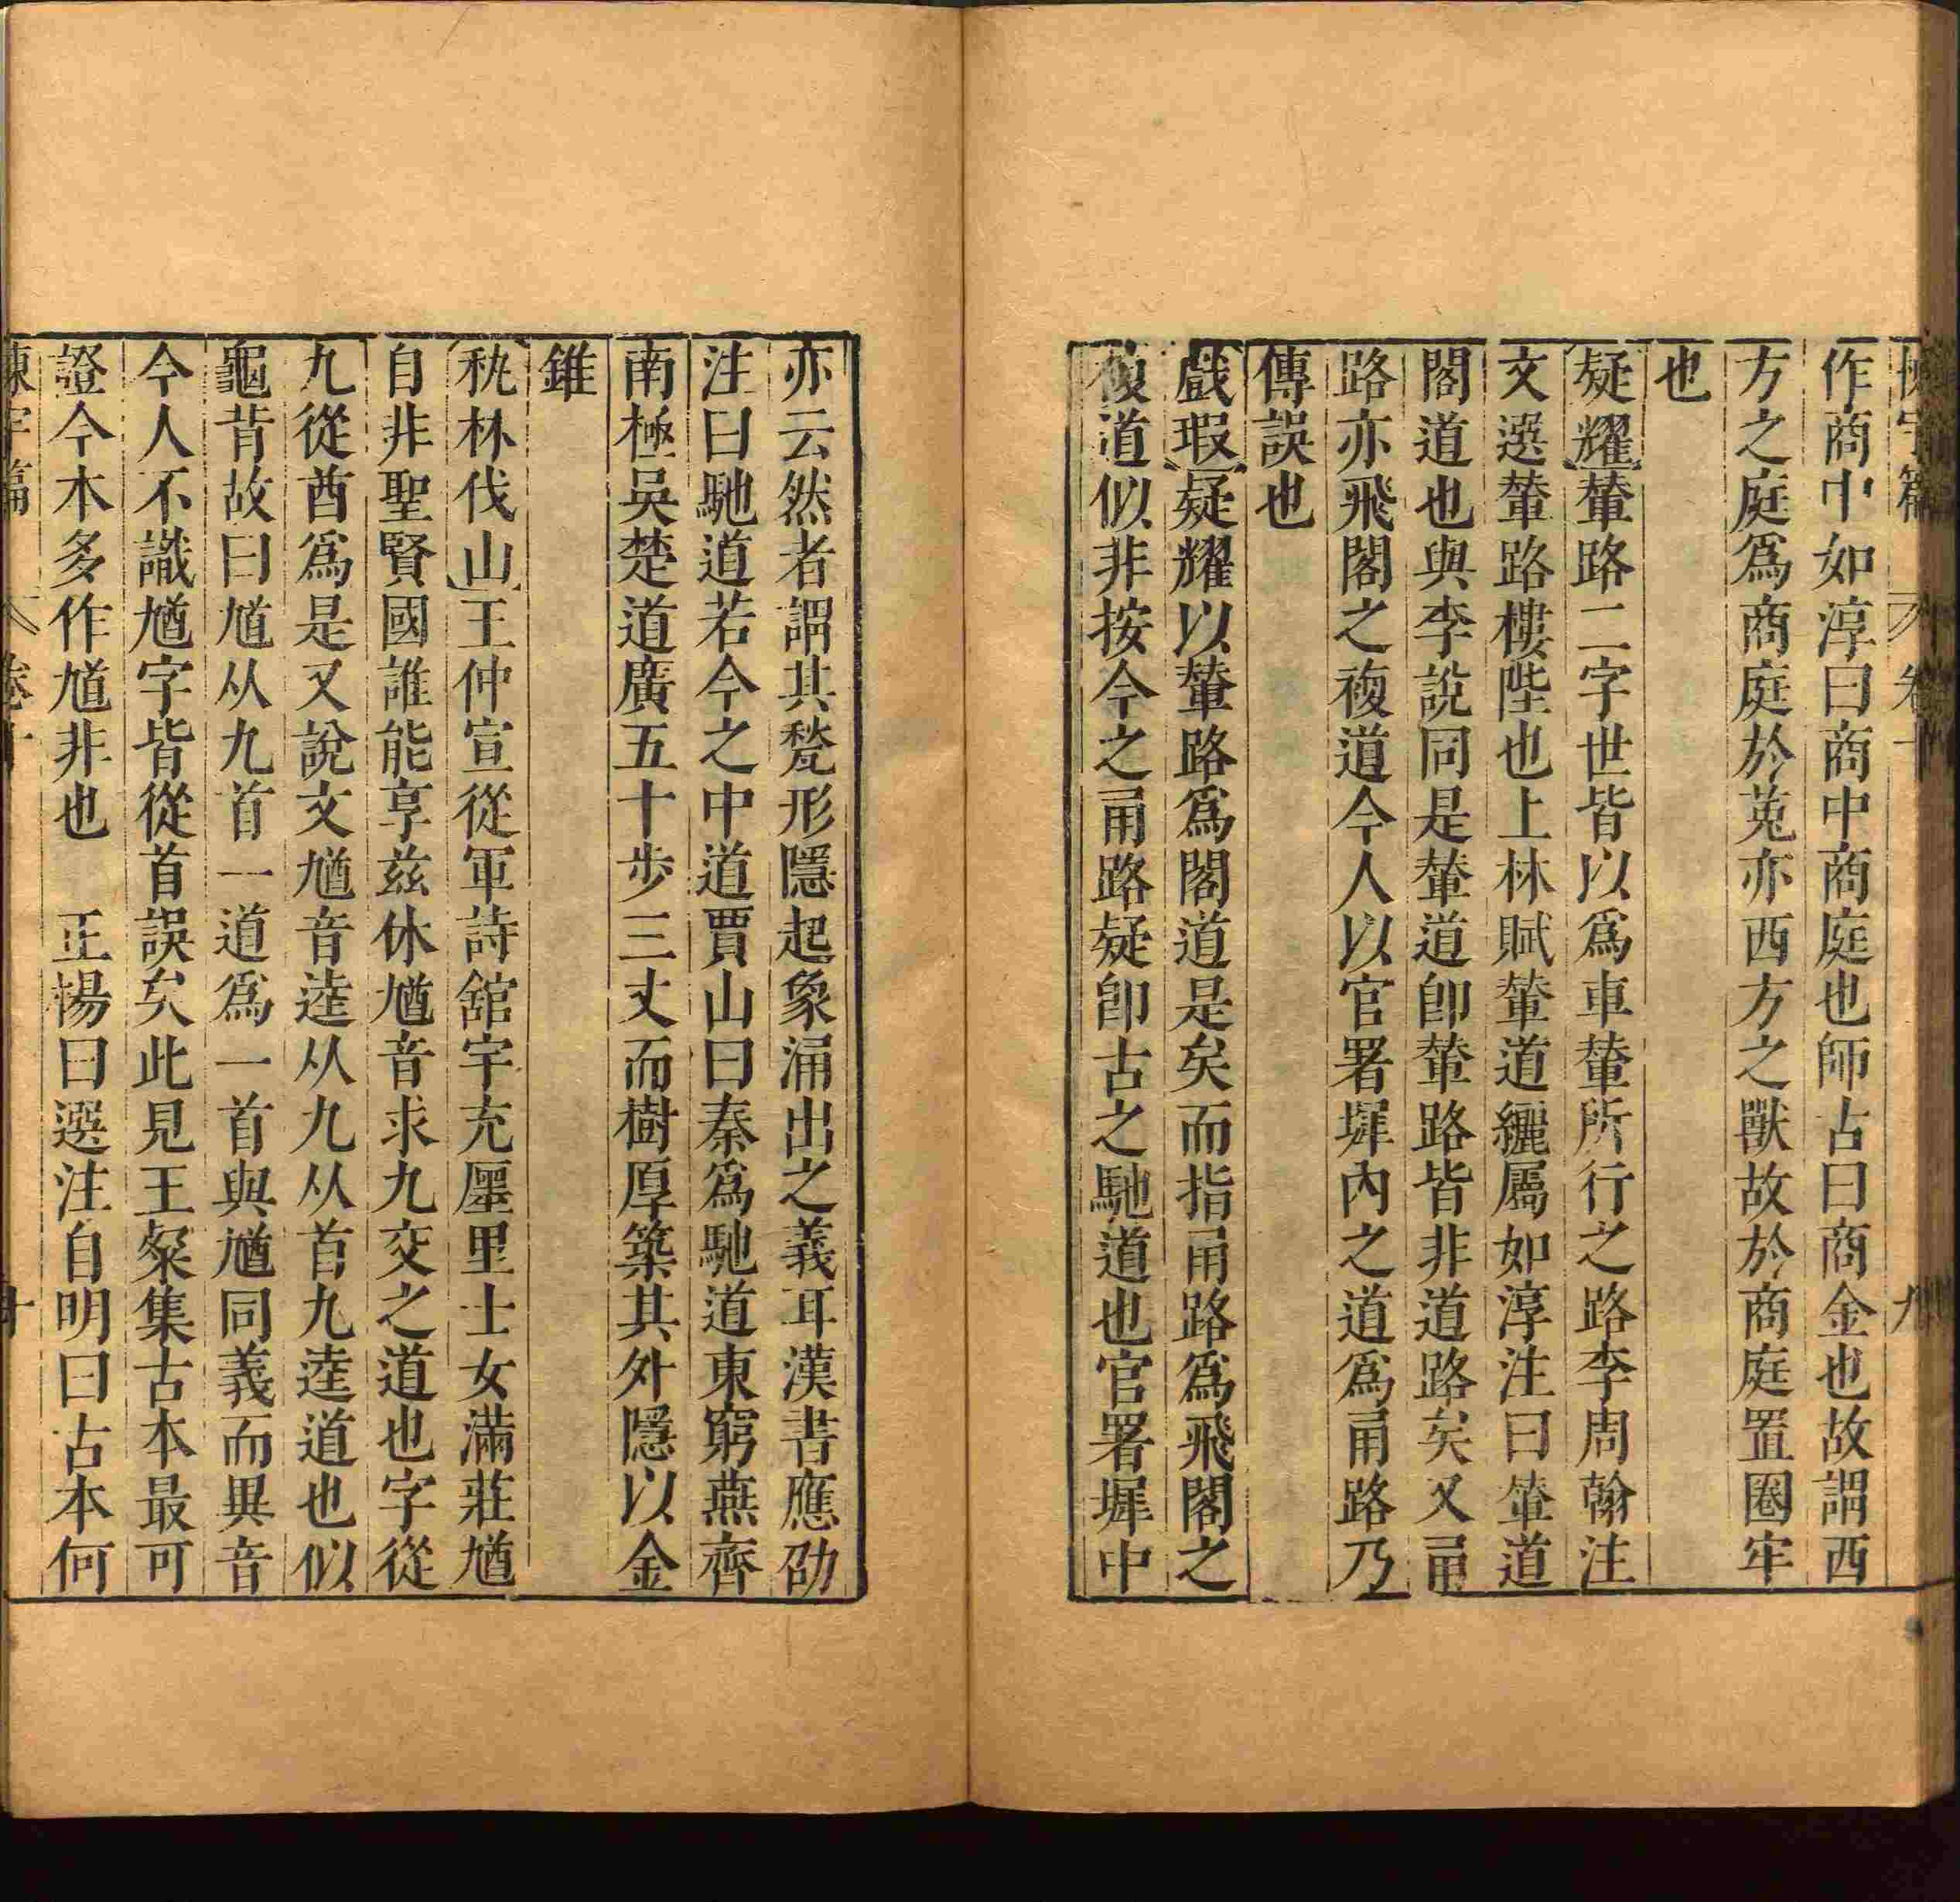 卷十 九
作商中如淳曰商中商庭也師古曰商金也故謂西
方之庭爲商庭於菟亦西方之獸故於商庭置圈牢
也
疑耀輦路二字世皆以爲車輦所行之路李周翰注
文選輦路樓陛也上林賦輦道纚屬如淳注曰輦道
閣道也與李說同是輦道卽輦路皆非道路矣又甬
路亦飛閣之複道今人以官署墀內之道爲甬路乃
傳誤也
戲瑕疑耀以輦路爲閣道是矣而指甬路爲飛閣之
複道似非按今之甬路疑卽古之馳道也官署墀中
亦云然者謂其甃形隱起象涌出之義耳漢書應劭
注曰馳道若今之中道賈山曰秦爲馳道東窮燕齊
南極吳楚道廣五十步三丈而樹厚築其外隱以金
錐
秇林伐山王仲宣從軍詩舘宇充廛里士女滿莊馗
自非聖賢國誰能享兹休馗音求九交之道也字從
九從酋爲是又說文馗音逵从九从首九逵道也似
龜背故曰馗从九首一道爲一首與馗同義而異音
今人不識馗字皆從首誤矣此見王粲集古本最可
證今本多作馗非也　正楊曰選注自明曰古本何
卷十 十